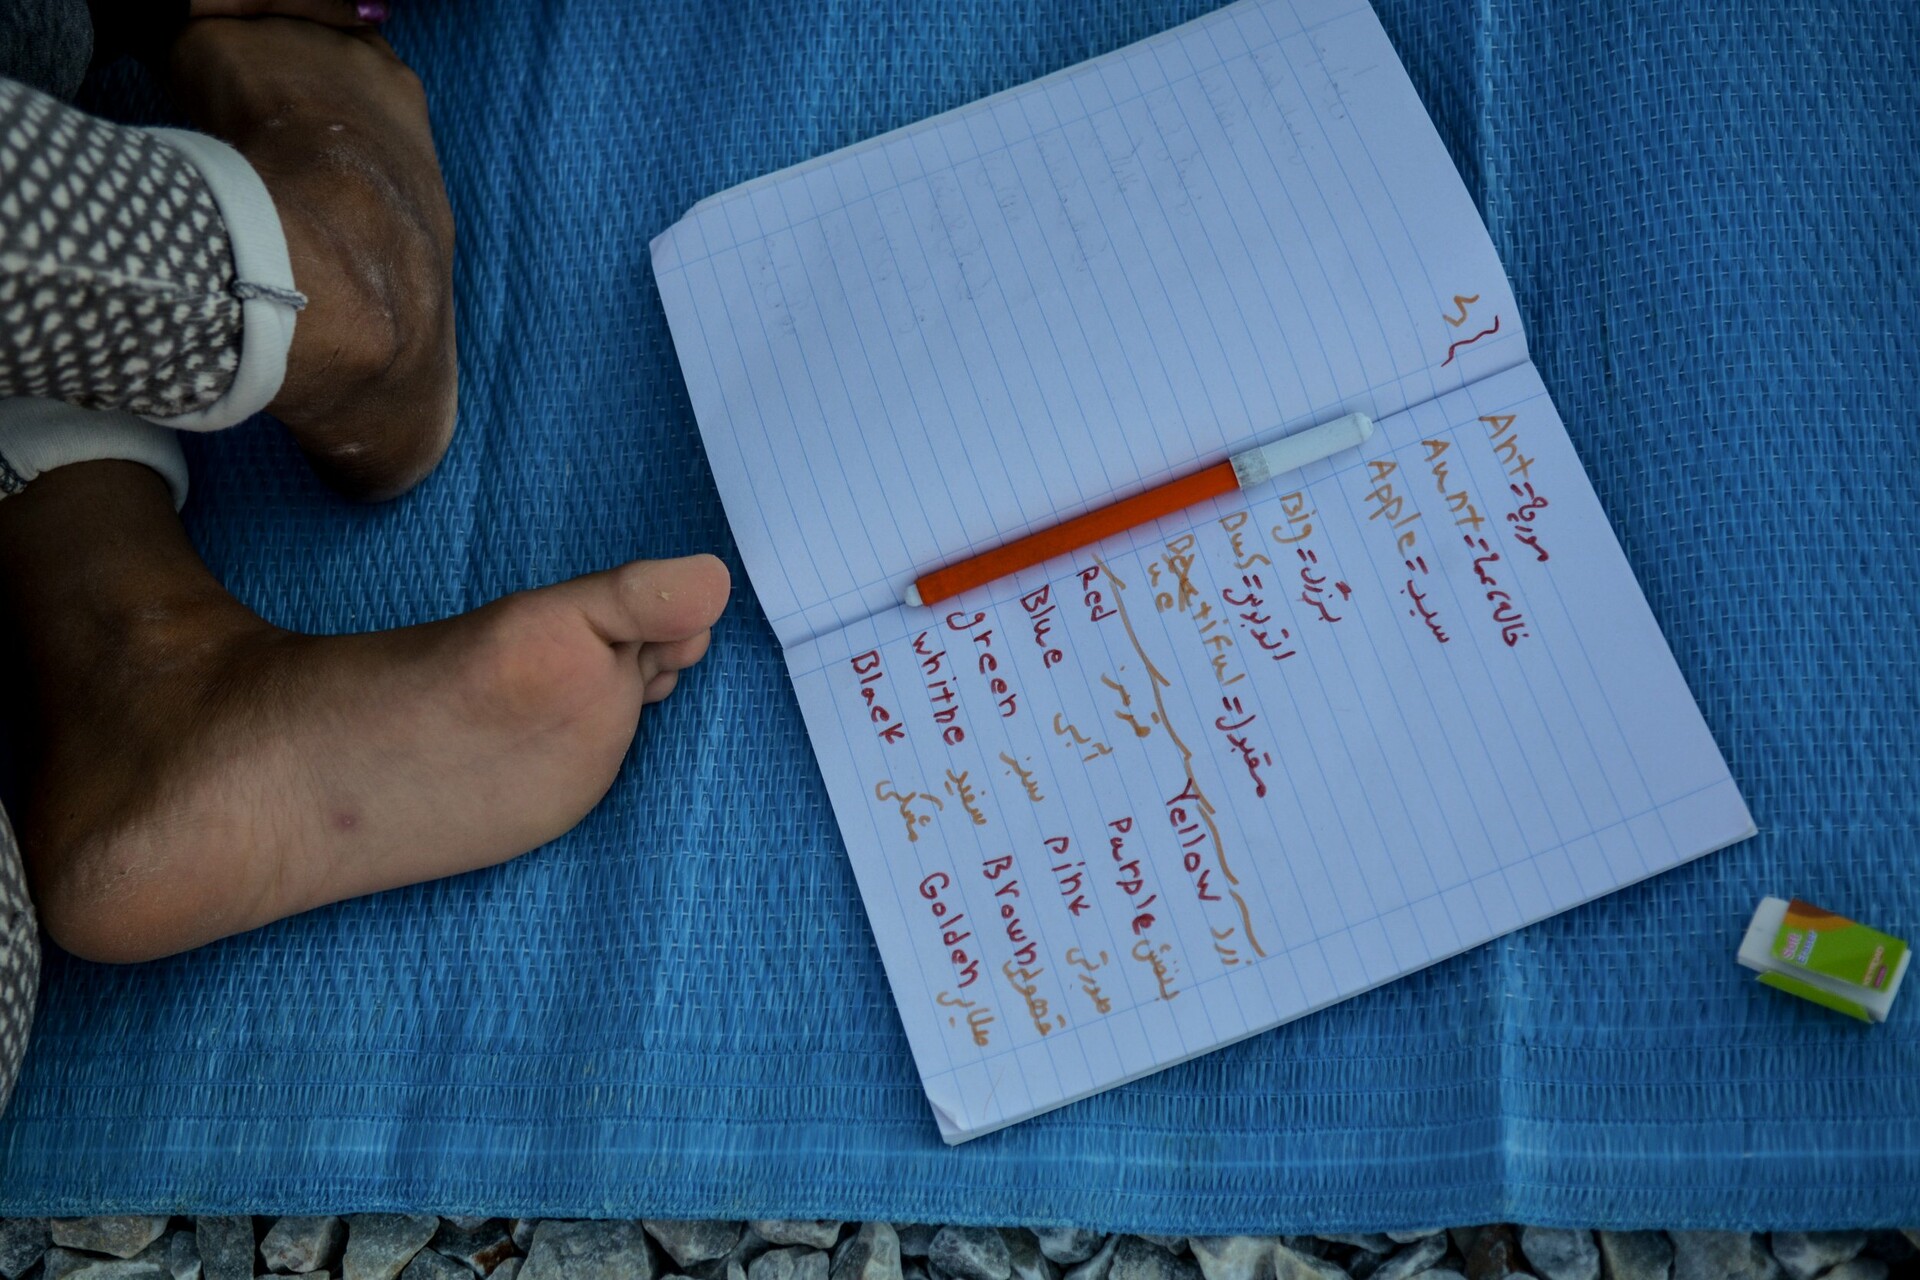 Ant = مورچه
Aunt = خاله، عمه
Apple = سیب
Big = بزرگ
Bus = اتوبوس
Beautiful = مقبول
Red قرمز Yellow زرد
Blue آبی Purple بنفش
green سبز pink صورتی
whithe سفید Brown قهوه‌ای
Black مشکی Golden طلایی
Soft